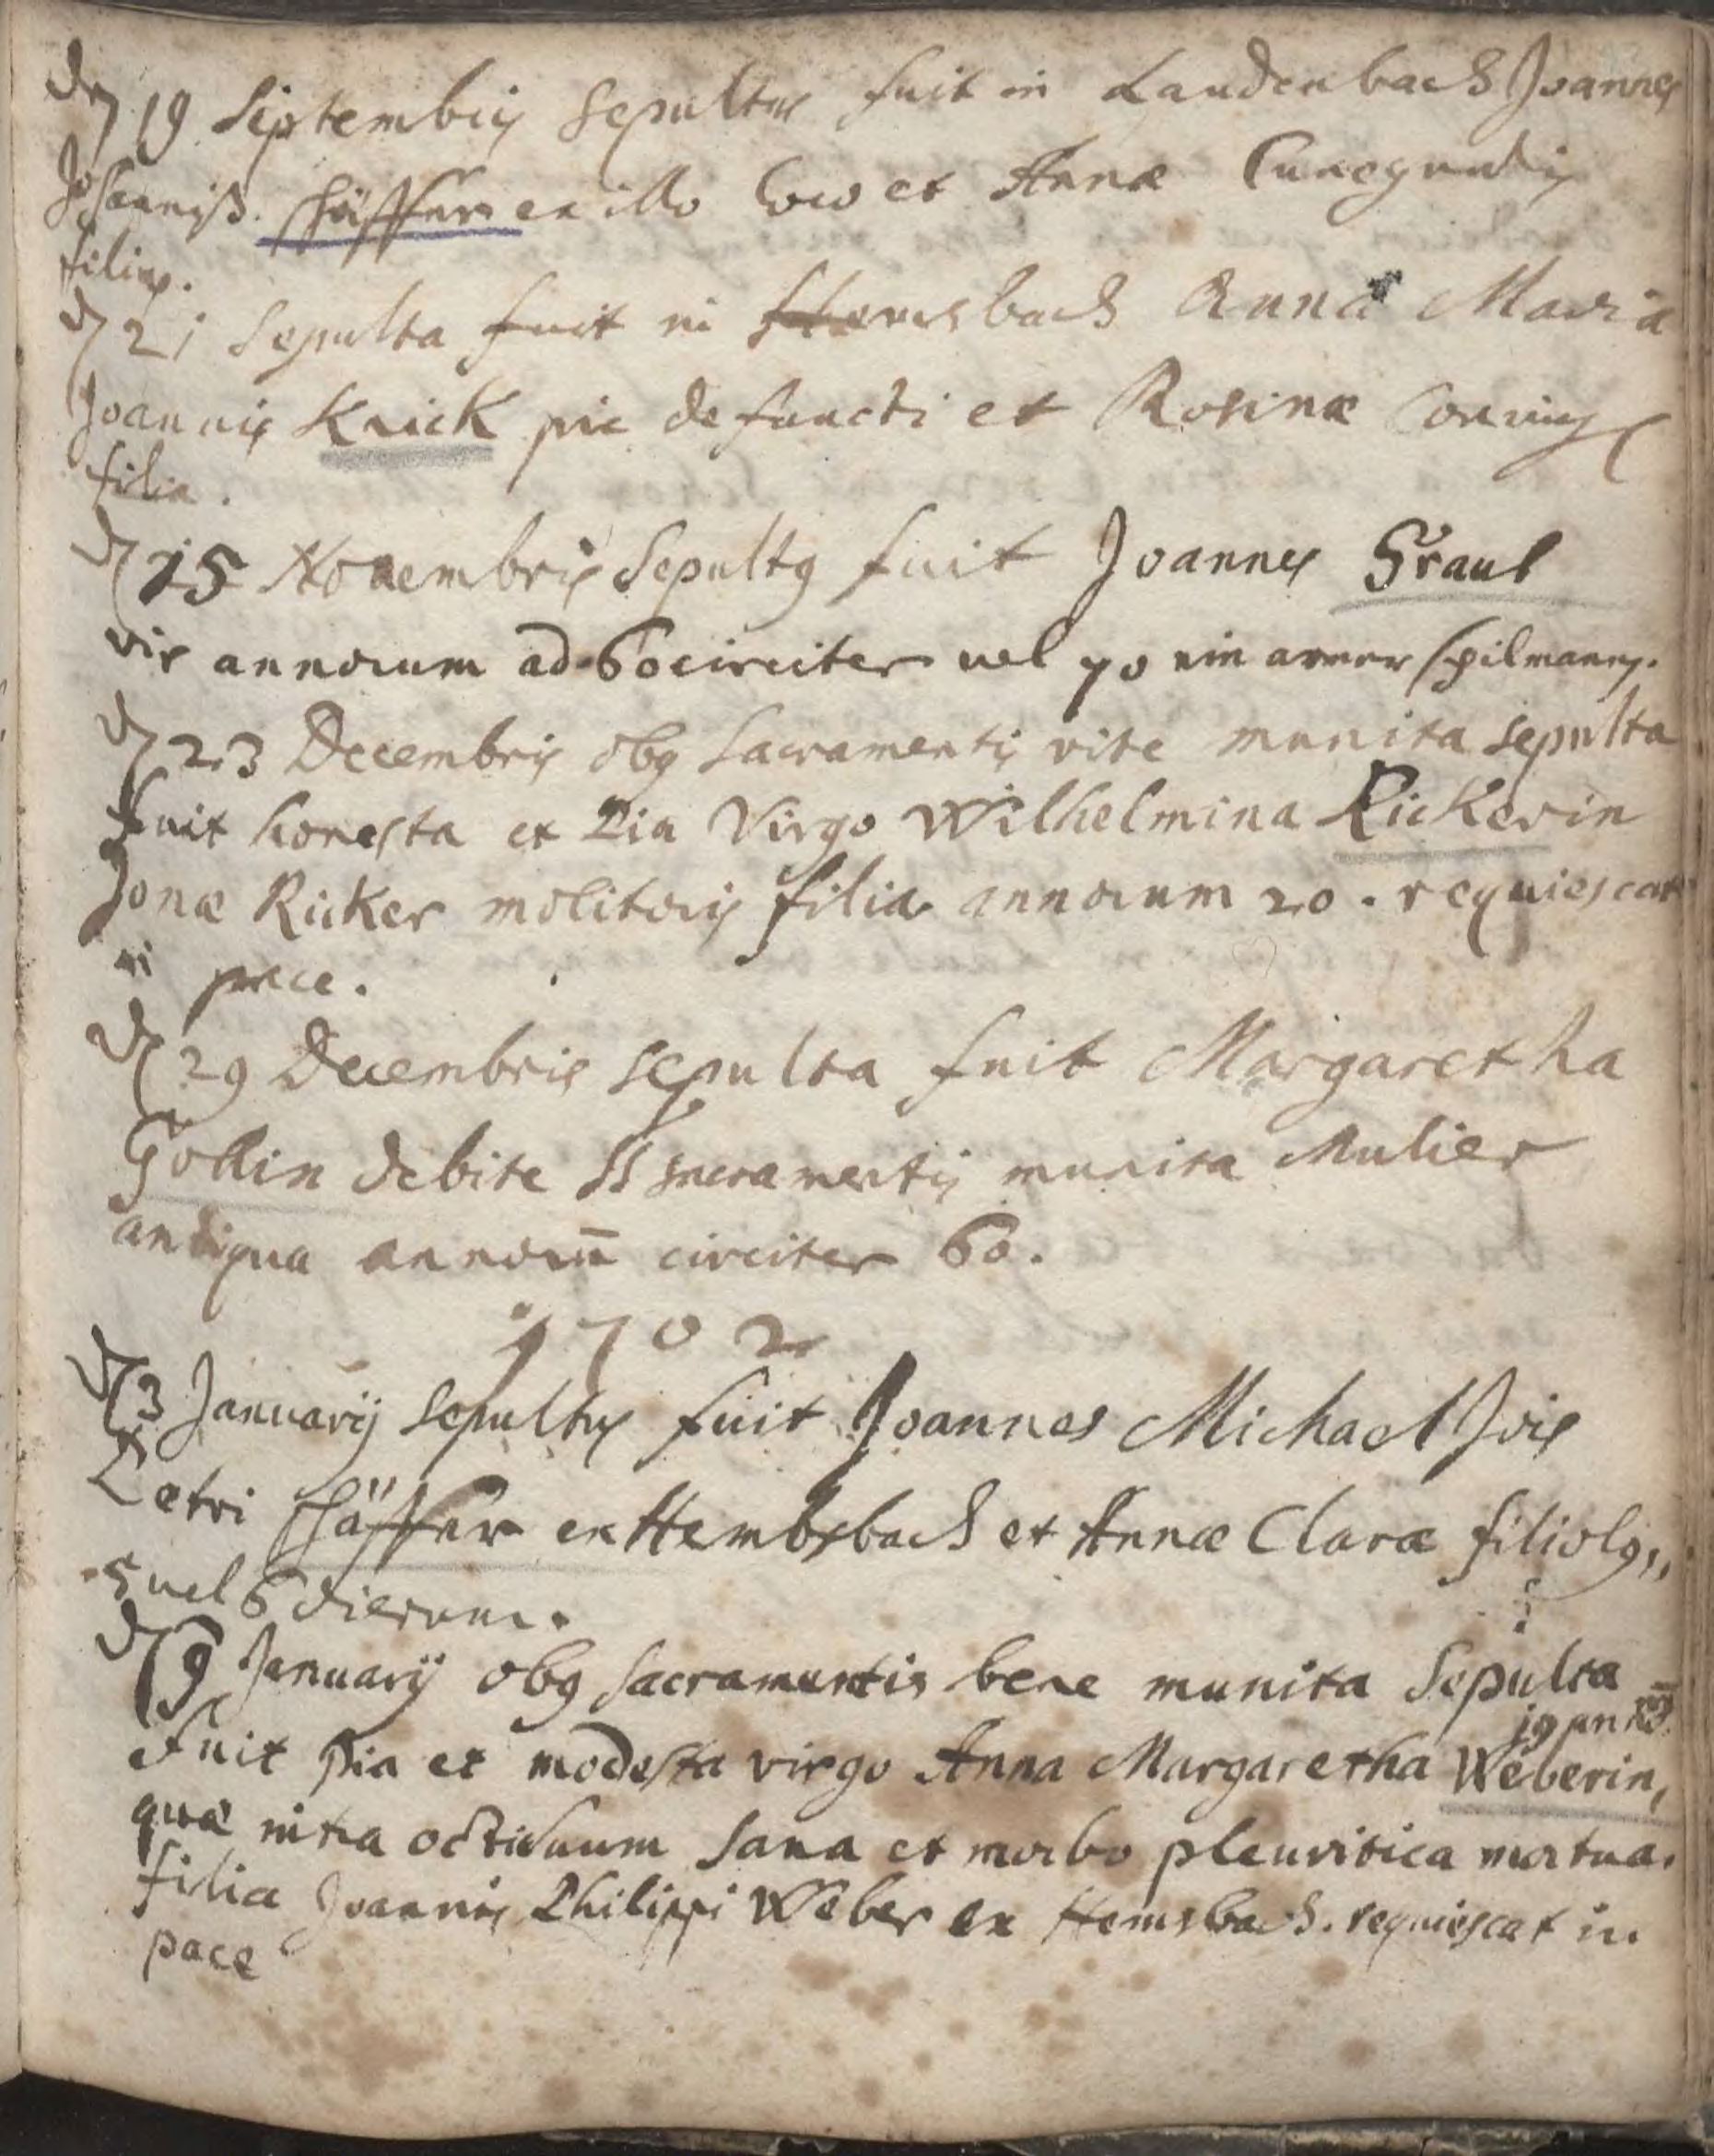 den 19 Septembris sepultus fuit in Laudenbach Joannes
Johanniß. Schäffer ex illo loco et Annæ Cunegundis
filius.
d 21 sepulta fuit in Hemsbach Anna Maria
Joannis Krick pie defuncti et Rosinæ Coniug
filia.
d 15 Nouembris Sepultg fuit Joannes Graul
vir annorum ad 60 circiter uel 70 ein armer Spilmann.
d 23 Decembris obg Sacramentis rite munita sepulta
fuit honesta et Pia Virgo Wilhelmina Rickerin
Jonæ Ricker molitoris filia annorum 20. requiescat
in pace.
d 29 Decembris sepulta fuit Margaretha
Gollin debite SS sacramentis munita Mulier
antiqua annorū circiter 60.
1702
d 3 Januarij Sepultus fuit Joannes Michael Jois
Petri Schäffer ex Hembsbach et Annæ Claræ filiolg,,
5 uel 6 dierum.
d 9 Januarij obg Sacramentis bene munita Sepulta
19 anno
fuit pia et modesta virgo Anna Margaretha Weberin,
quæ intra octiduum sana et morbo pleuritica mortua.
filia Joannis Philippi Weber ex Hemsbach. requiescat in
pace